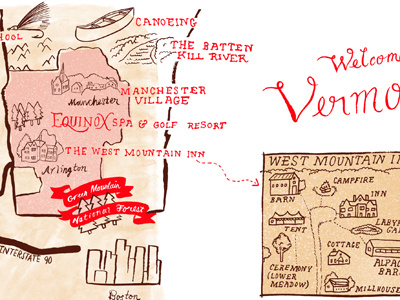 HOOL
CANOEING
THE BATTEN
KILL RIVER
Manchester
MANCHESTER
VILLAGE
EQUINOX SPA & GOLF RESORT
THE WEST MOUNTAIN INN
Arlington
Green Mountain
National Forest
INTERSTATE 90
Boston
Welcome
Vermo
WEST MOUNTAIN I
BARN
CAMPFIRE
INN
TENT
LABY
GA
COTTAGE
ALPAC
BARN
CEREMONY
(LOWER
MEADOW)
MILLHOUSE